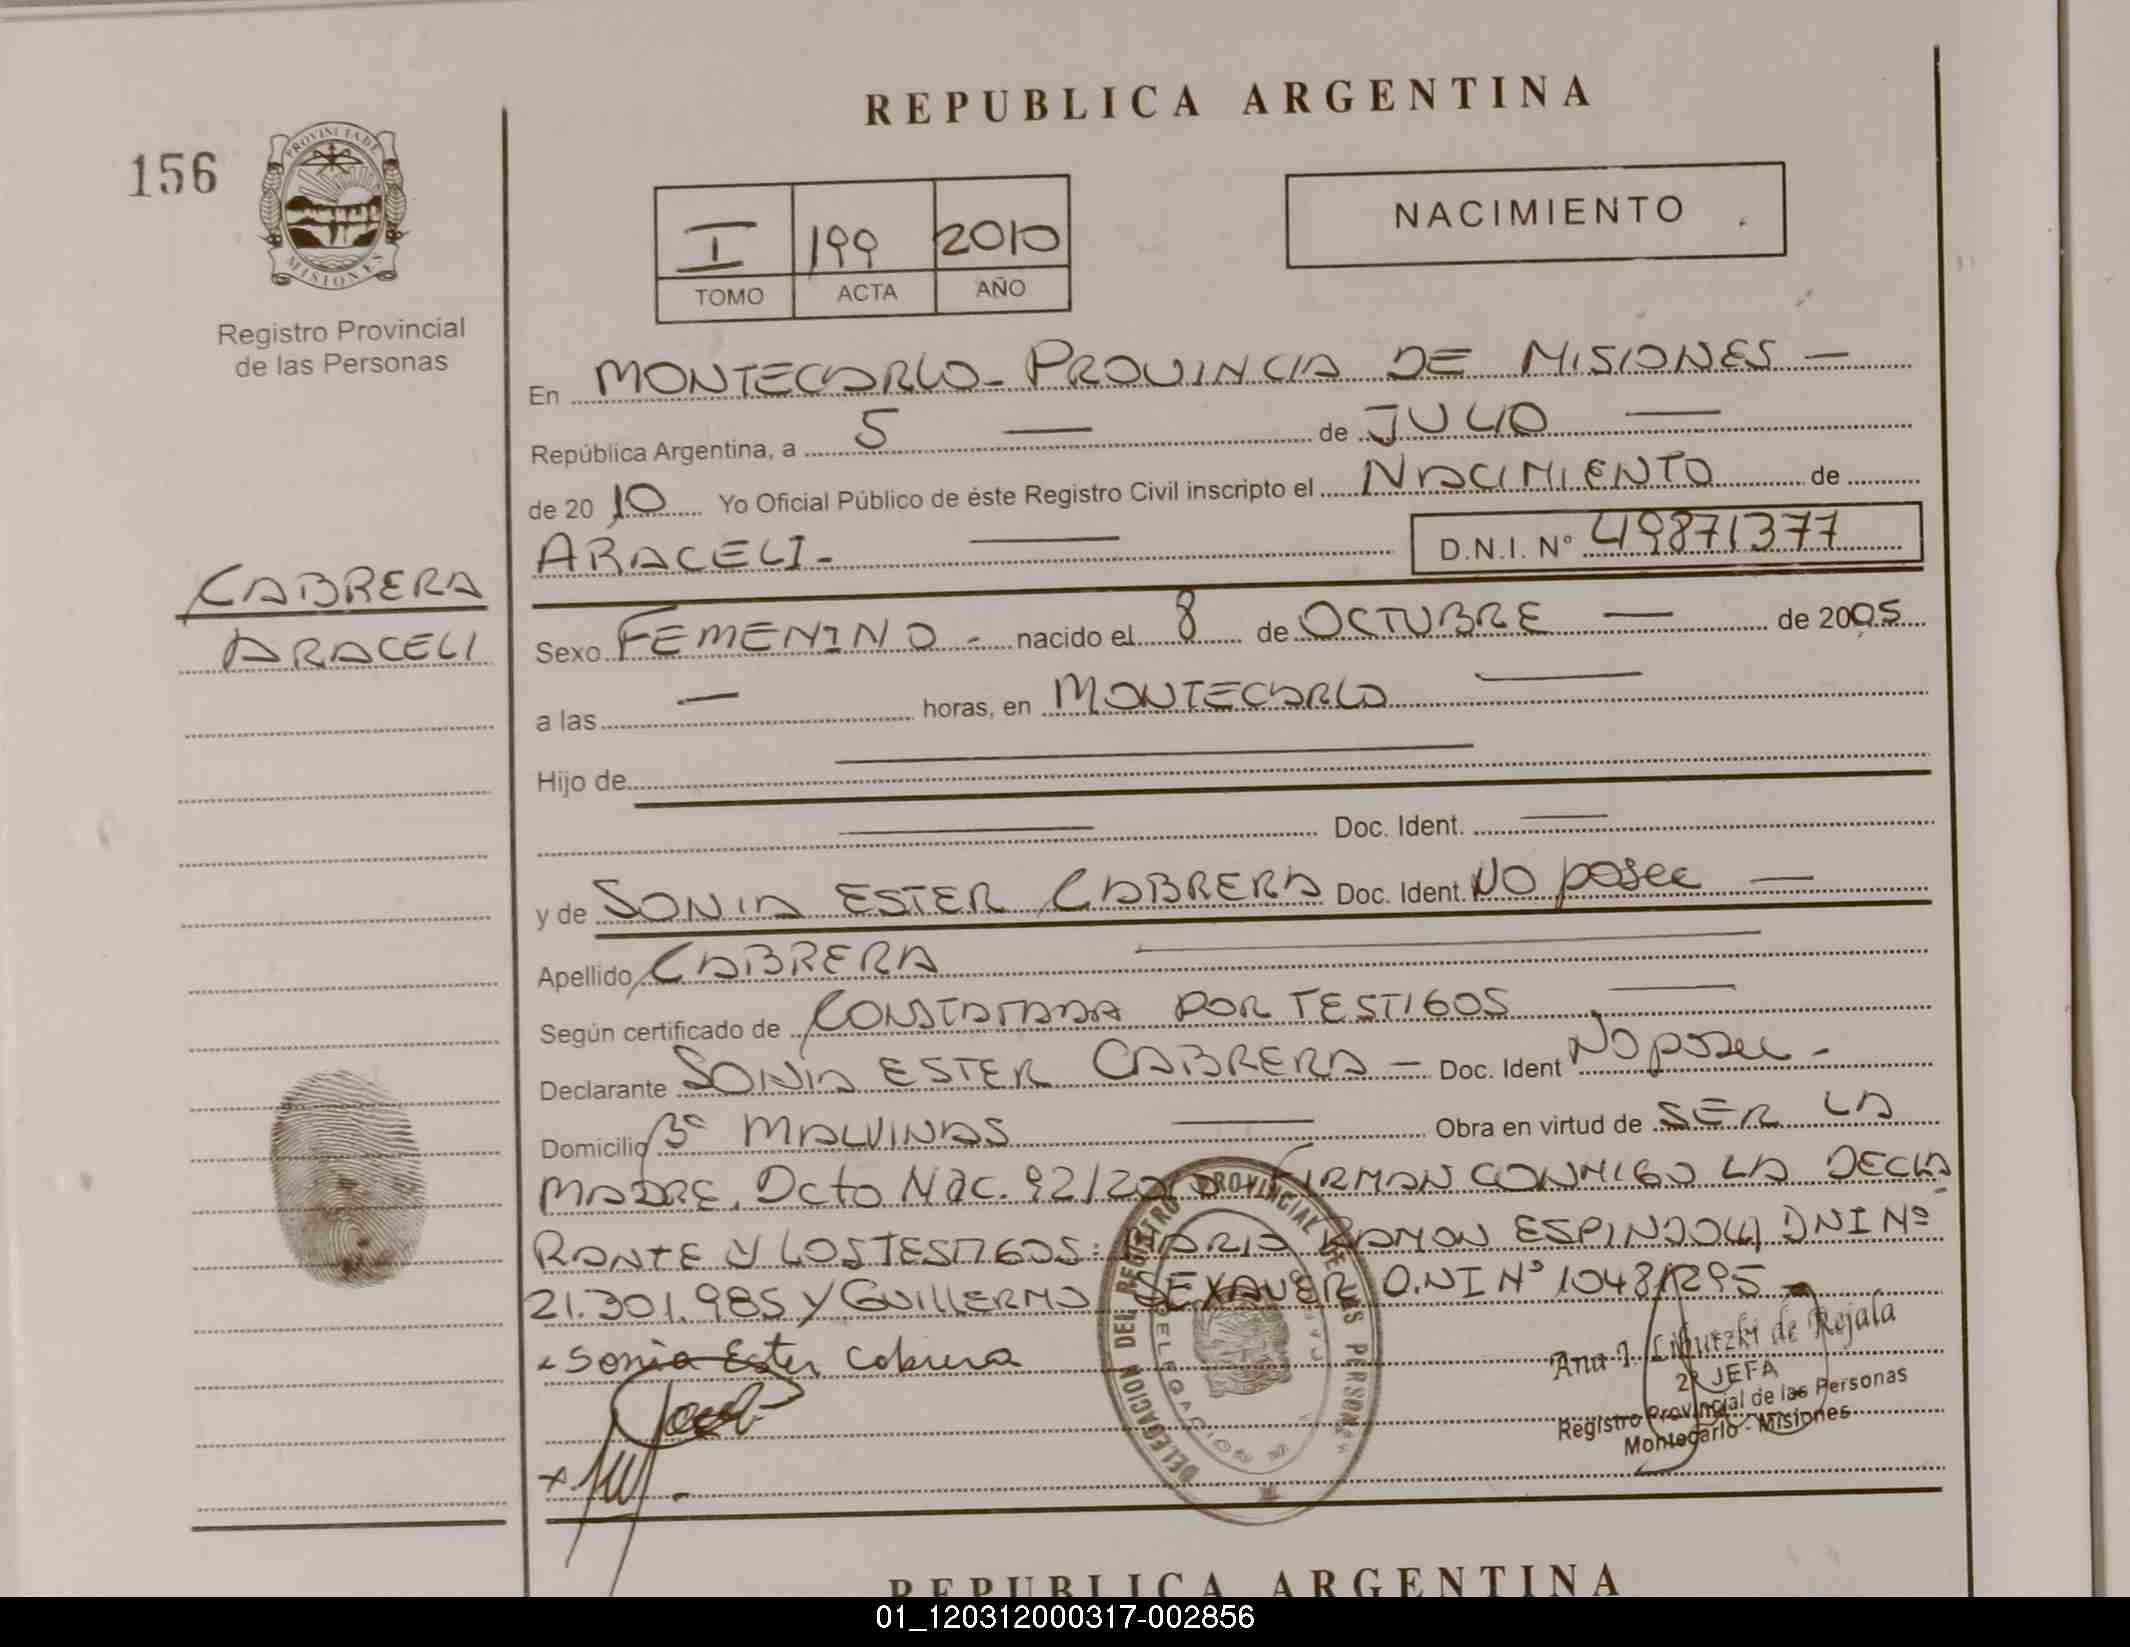 REPUBLICA ARGENTINA
156
PROVINCIA DE
MISIONES
Registro Provincial
de las Personas
I 199 2010
TOMO ACTA AÑO
NACIMIENTO
En MONTECARLO - PROVINCIA DE MISIONES —
República Argentina, a 5 — de JULIO —
de 2010 Yo Oficial Público de éste Registro Civil inscripto el NACIMIENTO de
ARACELI - — D.N.I. Nº 49871377
CABRERA
ARACELI
Sexo FEMENINO - nacido el 8 de OCTUBRE — de 2005
a las — horas, en MONTECARLO —
Hijo de —
— Doc. Ident. —
y de SONIA ESTER CABRERA Doc. Ident. NO posee —
Apellido CABRERA —
Según certificado de CONSTATADA POR TESTIGOS —
Declarante SONIA ESTER CABRERA - Doc. Ident NO posee -
Domicilio Bº MALVINAS — Obra en virtud de SER LA
MADRE. Dcto Nac. 92/2010 FIRMAN CONMIGO LA DECLA
RANTE Y LOS TESTIGOS: RAMON ESPINDOLA DNI Nº
21.301.985 Y GUILLERMO SEXAUER D.NI Nº 10481295 -
Sonia Ester Cabrera
DELEGACION DEL REGISTRO PROVINCIAL DE LAS PERSONAS
Ana I. de Rejala
2ª JEFA
Registro Provincial de las Personas
Montecarlo - Misiones
REPUBLICA ARGENTINA
01_120312000317-002856